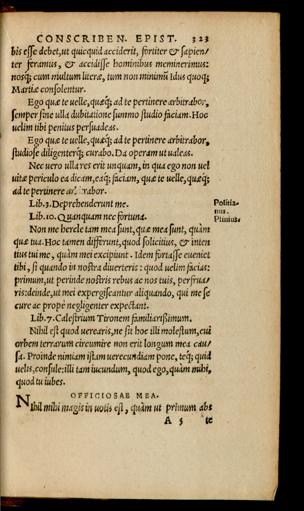 CONSCRIBEN. EPIST. 323
bis esse debet, ut quicquid acciderit, fortiter & sapien/
ter feramus, & accidisse hominibus meminerimus:
nosq; cum multum literæ, tum non minimũ Idus quoq;
Martiæ consolentur.
Ego quæ te uelle, quæq; ad te pertinere arbitrabor,
semper sine ulla dubitatione summo studio faciam. Hoc
uelim tibi penitus persuadeas.
Ego quæ te uelle, quæq; ad te pertinere arbitrabor,
studiose diligenterq; curabo. Da operam ut ualeas.
Nec uero ulla res erit unquam, in qua ego non uel
uitæ periculo ea dicam, eaq; faciam, quæ te uelle, quæq;
ad te pertinere arbitrabor.
Lib. 3. Deprehenderunt me.
Politia-
nus.
Lib. 10. Quanquam nec fortuna.
Plinius.
Non me hercle tam mea sunt, quæ mea sunt, quàm
quæ tua. Hoc tamen differunt, quod solicitius, & inten
tius tui me, quàm mei excipiunt. Idem fortasse eueniet
tibi, si quando in nostra diuerteris: quod uelim facias:
primum, ut perinde nostris rebus ac nos tuis, perfrua/
ris: deinde, ut mei expergiscantur aliquando, qui me se
cure ac propè negligenter expectant.
Lib. 7. Calestrium Tironem familiarissimum.
Nihil est quod uerearis, ne sit hoc illi molestum, cui
orbem terrarum circumire non erit longum mea cau/
sa. Proinde nimiam istam uerecundiam pone, teq; quid
uelis, consule: illi tam iucundum, quod ego, quàm mihi,
quod tu iubes.
OFFICIOSAE MEA.
Nihil mihi magis in uotis est, quàm ut primum abs
A 5 te